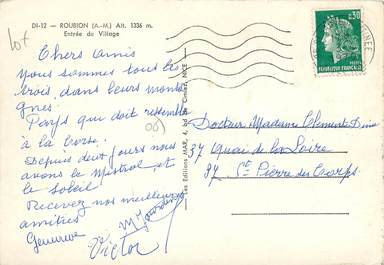 DI-12 - ROUBION (A.-M.) Alt. 1336 m.
Entrée du Village
lot
Chers amis
Nous sommes tous les
trois, dans leurs monta
gnes.
Pays qui doit ressembler
à la Corse.
Depuis deux jours nous
avons le Mistral et
le soleil
Recevez nos meilleures
amitiés
Genevieve
Victor
(06)
Les Editions MAR, NICE
0,30
REPUBLIQUE FRANCAISE
Docteur Madame Clement
37 Quai de la Loire
37. St Pierre des Corps